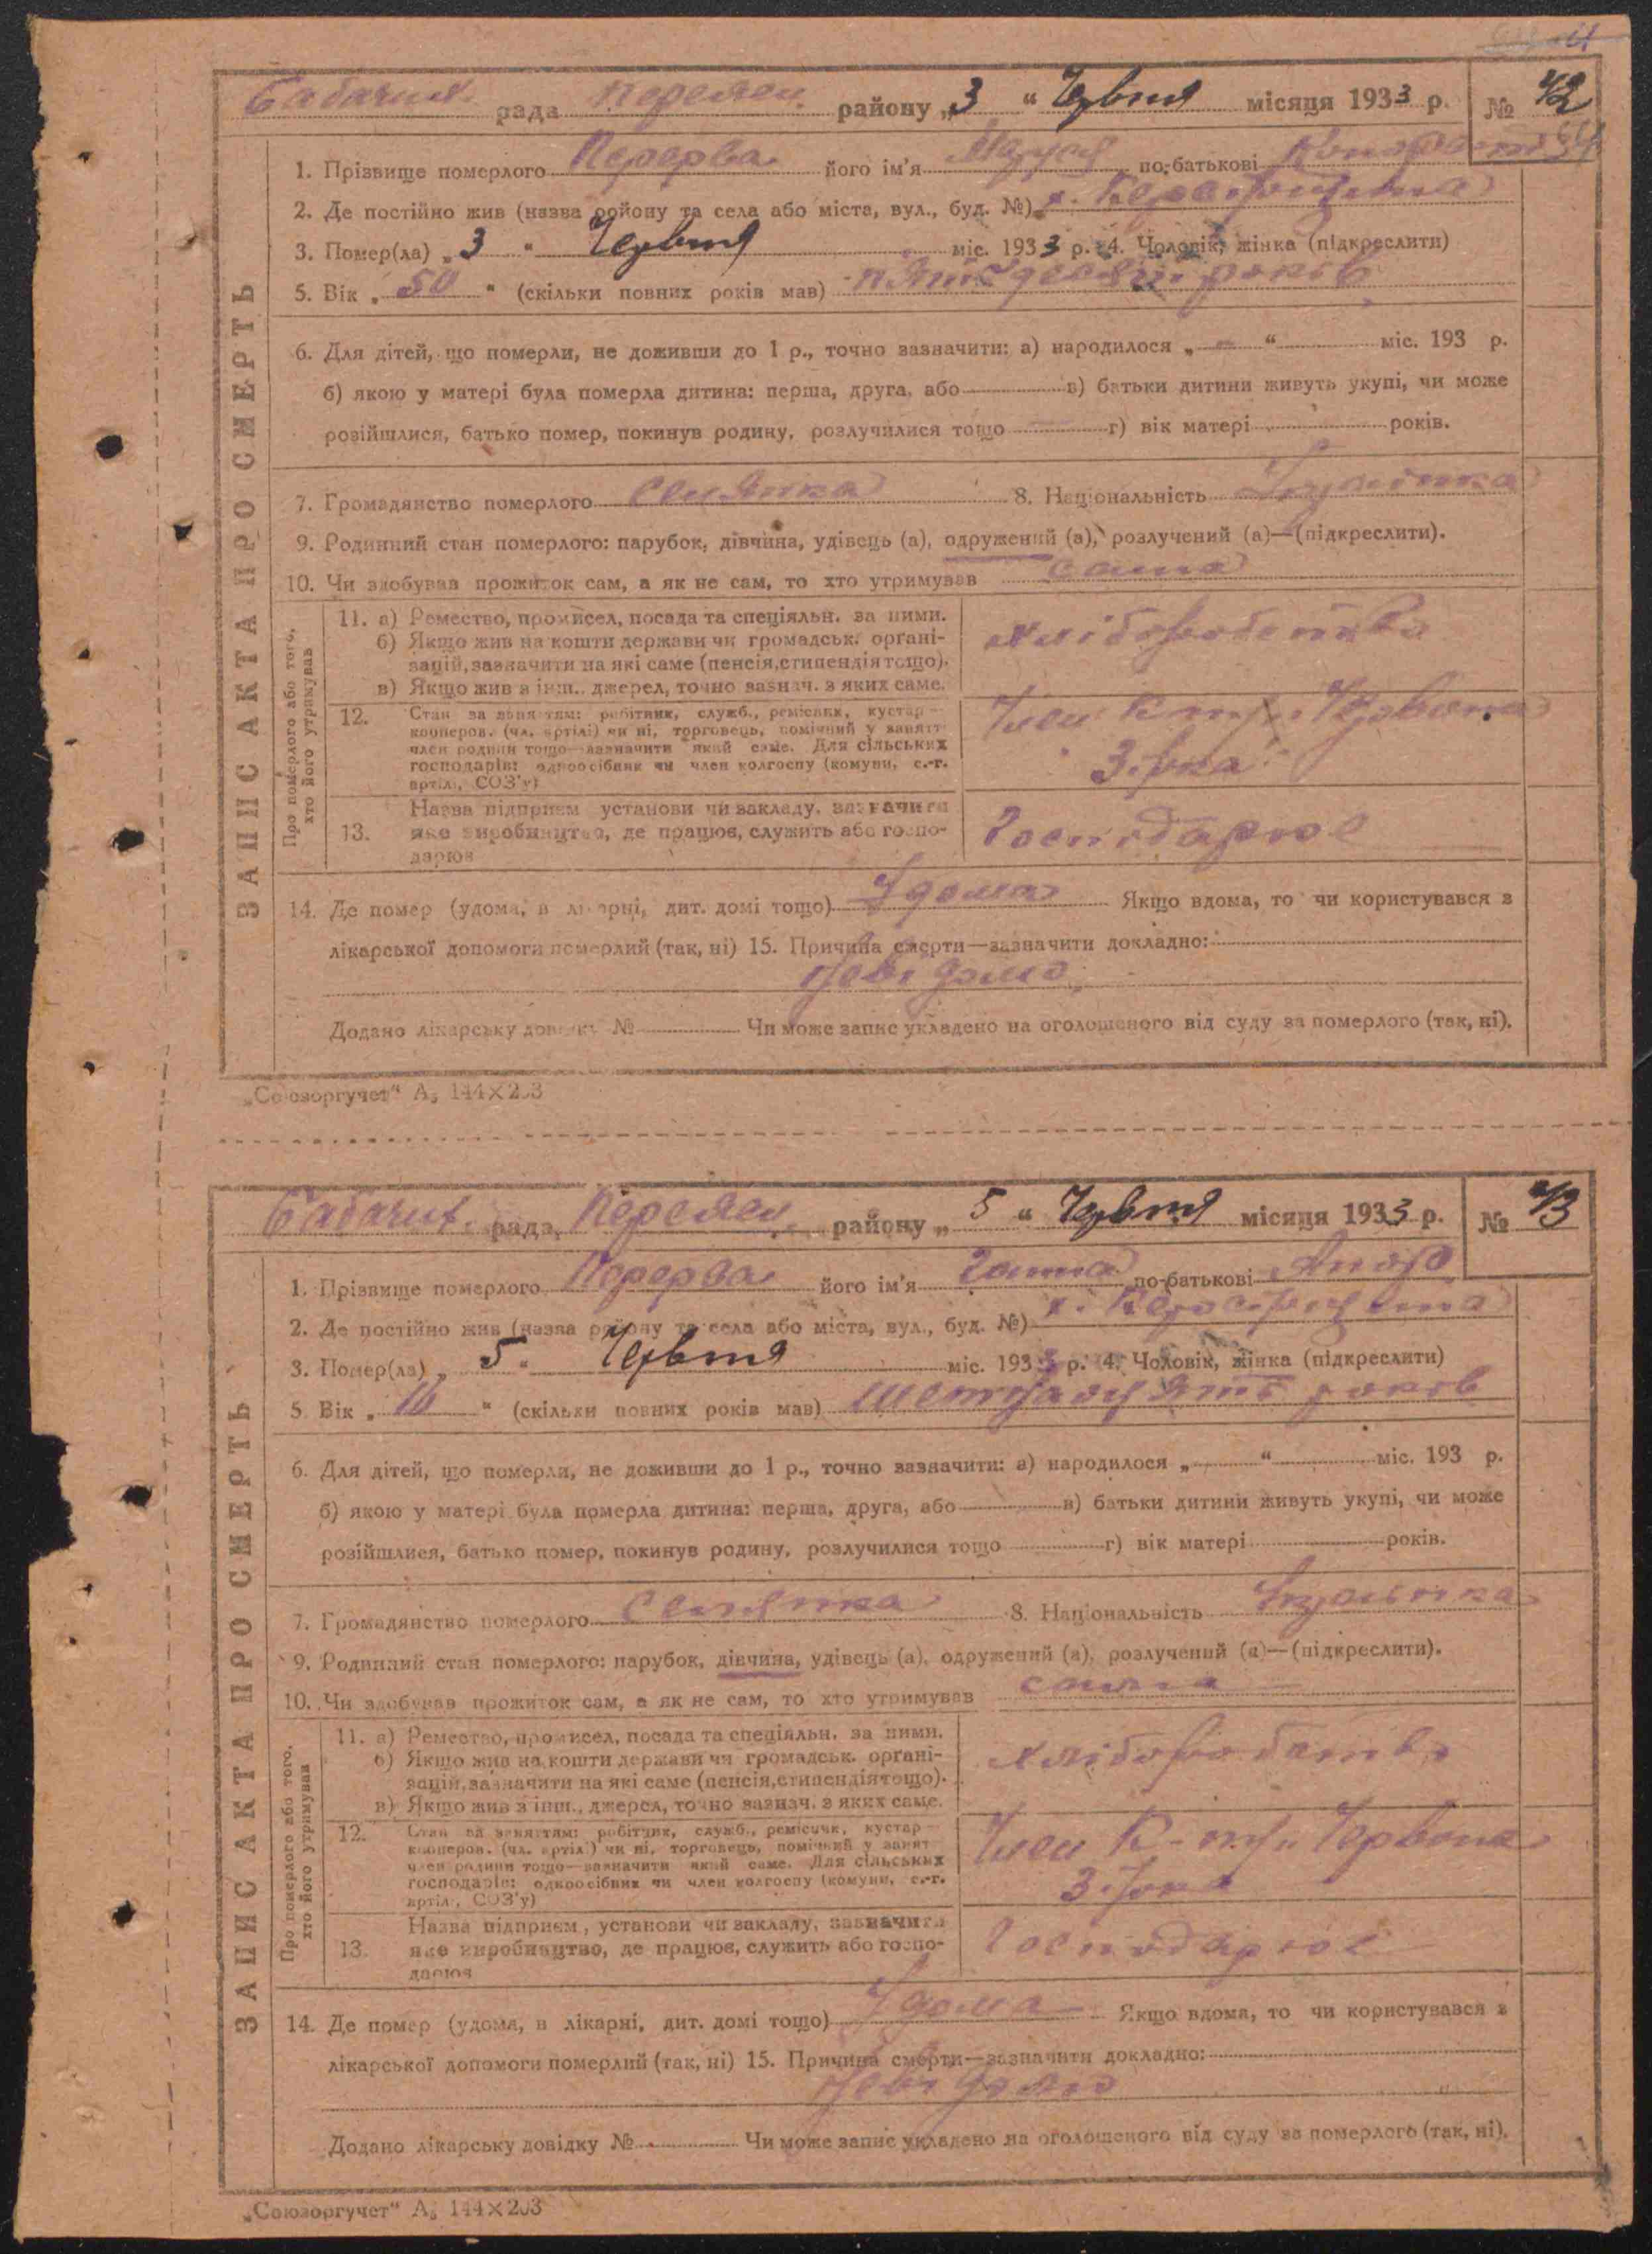 Бабачих. рада Переясл. району „3“ Червня місяця 1933 р. № 42
1. Прізвище померлого Перерва його ім'я Маруся по-батькові
2. Де постійно жив (назва району та села або міста, вул., буд. №) х.
3. Помер(ла) „3“ Червня міс. 1933 р. 4. Чоловік, жінка (підкреслити)
5. Вік „50“ (скільки повних років мав) п'ятьдесят років
6. Для дітей, що померли, не доживши до 1 р., точно зазначити: а) народилося „ “ міс. 193 р.
б) якою у матері була померла дитина: перша, друга, або в) батьки дитини живуть укупі, чи може
розійшлися, батько помер, покинув родину, розлучилися тощо г) вік матері років.
7. Громадянство померлого Селянка 8. Національність Українка
9. Родинний стан померлого: парубок, дівчина, удівець (а), одружений (а), розлучений (а)—(підкреслити).
10. Чи здобував прожиток сам, а як не сам, то хто утримував сама
ЗАПИС АКТА ПРО СМЕРТЬ
Про померлого або того, хто його утримував
11. а) Ремество, промисел, посада та спеціяльн. за ними.
б) Якщо жив на кошти держави чи громадськ. органі-
зацій, зазначити на які саме (пенсія, стипендія тощо).
в) Якщо жив з інш. джерел, точно зазнач. з яких саме.
хліборобство
12. Стан за заняттям: робітник, служб., ремісник, кустар—
кооперов. (чл. артілі) чи ні, торговець, помічний у занятт
член родини тощо—зазначити який саме. Для сільських
господарів: одноосібник чи член колгоспу (комуни, с.-г.
артілі, СОЗ'у)
Член К-тр. Червона
Зірка
13. Назва підприєм установи чи закладу, зазначити
яке виробництво, де працює, служить або госпо-
дарює
Господарює
14. Де помер (удома, в лікарні, дит. домі тощо) Удома Якщо вдома, то чи користувався з
лікарської допомоги померлий (так, ні) 15. Причина смерти—зазначити докладно:
Невідомо
Додано лікарську довідку № Чи може запис укладено на оголошеного від суду за померлого (так, ні).
„Союзоргучет“ А₅ 144×203
Бабачих. рада Переясл. району „5“ Червня місяця 1933 р. № 43
1. Прізвище померлого Перерва його ім'я Ганна по-батькові
2. Де постійно жив (назва району та села або міста, вул., буд. №) х.
3. Помер(ла) „5“ Червня міс. 1933 р. 4. Чоловік, жінка (підкреслити)
5. Вік „16“ (скільки повних років мав) шестнадцять років
6. Для дітей, що померли, не доживши до 1 р., точно зазначити: а) народилося „ “ міс. 193 р.
б) якою у матері була померла дитина: перша, друга, або в) батьки дитини живуть укупі, чи може
розійшлися, батько помер, покинув родину, розлучилися тощо г) вік матері років.
7. Громадянство померлого Селянка 8. Національність Українка
9. Родинний стан померлого: парубок, дівчина, удівець (а), одружений (а), розлучений (а)—(підкреслити).
10. Чи здобував прожиток сам, а як не сам, то хто утримував сама
ЗАПИС АКТА ПРО СМЕРТЬ
Про померлого або того, хто його утримував
11. а) Ремество, промисел, посада та спеціяльн. за ними.
б) Якщо жив на кошти держави чи громадськ. органі-
зацій, зазначити на які саме (пенсія, стипендія тощо).
в) Якщо жив з інш., джерел, точно зазнач. з яких саме.
хліборобство
12. Стан за заняттям: робітник, служб., ремісник, кустар—
кооперов. (чл. артілі) чи ні, торговець, помічний у занят
член родини тощо—зазначити який саме. Для сільських
господарів: одноосібник чи член колгоспу (комуни, с.-г.
артілі, СОЗ'у)
Член К-тр. Червона
Зірка
13. Назва підприєм, установи чи закладу, зазначити
яке виробництво, де працює, служить або госпо-
дарює
Господарює
14. Де помер (удома, в лікарні, дит. домі тощо) Удома Якщо вдома, то чи користувався з
лікарської допомоги померлий (так, ні) 15. Причина смерти—зазначити докладно:
Невідомо
Додано лікарську довідку № Чи може запис укладено на оголошеного від суду за померлого (так, ні).
„Союзоргучет“ А₅ 144×203